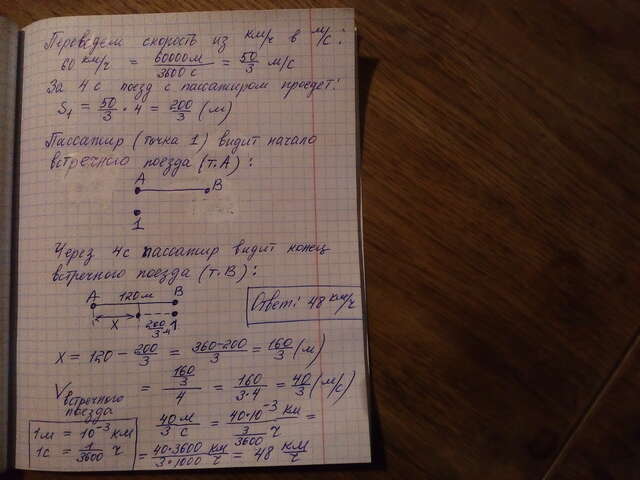 Переведем скорость из км/ч в м/с:
60 км/ч = 60000 м / 3600 с = 50/3 м/с
За 4 с поезд с пассажиром проедет:
S₁ = 50/3 · 4 = 200/3 (м)
Пассажир (точка 1) видит начало
встречного поезда (т. А):
A B
1
Через 4с пассажир видит конец
встречного поезда (т. В):
A 120м B
x 200/3 м 1
Ответ: 48 км/ч
x = 120 - 200/3 = 360-200/3 = 160/3 (м)
V встречного поезда = 160/3 / 4 = 160/3·4 = 40/3 (м/с)
1м = 10⁻³ км
1с = 1/3600 ч
40 м / 3 с = 40·10⁻³ км / 3/3600 ч =
= 40·3600/3·1000 км/ч = 48 км/ч